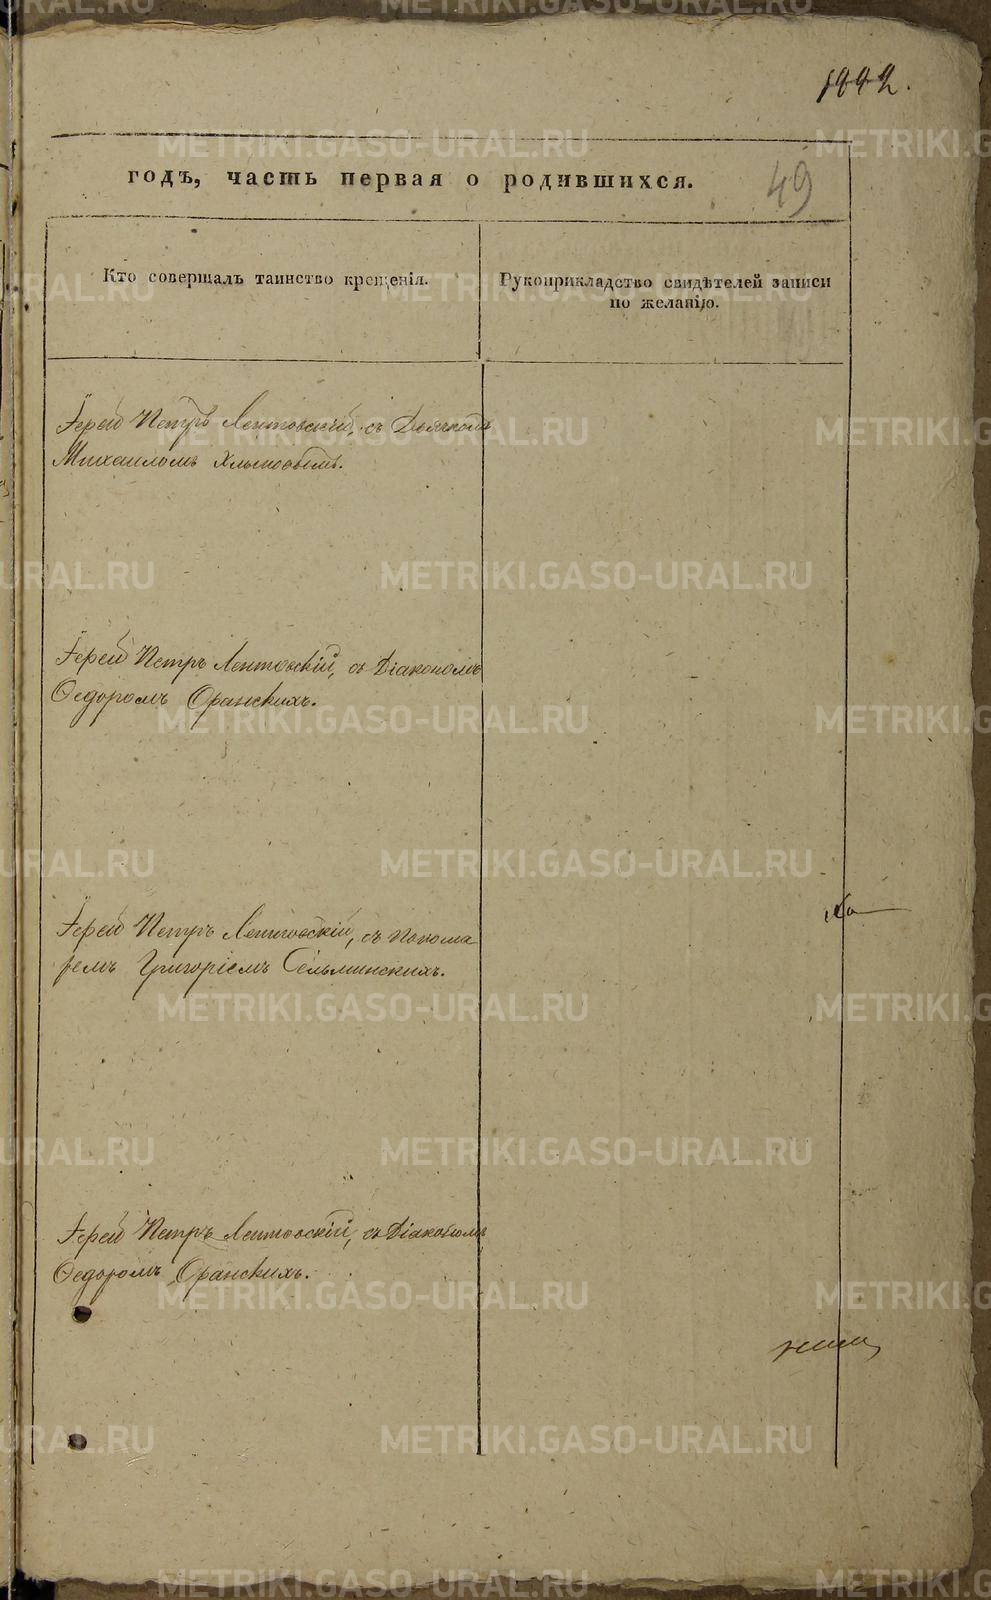 1842.
годъ, часть первая о родившихся.
49
Кто совершалъ таинство крещенія.
Рукоприкладство свидѣтелей записи
по желанію.
Іерей Петръ Лентовскій, съ Дьячкомъ
Михаиломъ Хлыновымъ.
Іерей Петръ Лентовскій, съ Діакономъ
Ѳедоромъ Оранскихъ.
Іерей Петръ Лентовскій, съ Понома
ремъ Григоріемъ Сельминскихъ.
Іерей Петръ Лентовскій, съ Діакономъ
Ѳедоромъ Оранскихъ.
METRIKI.GASO-URAL.RU